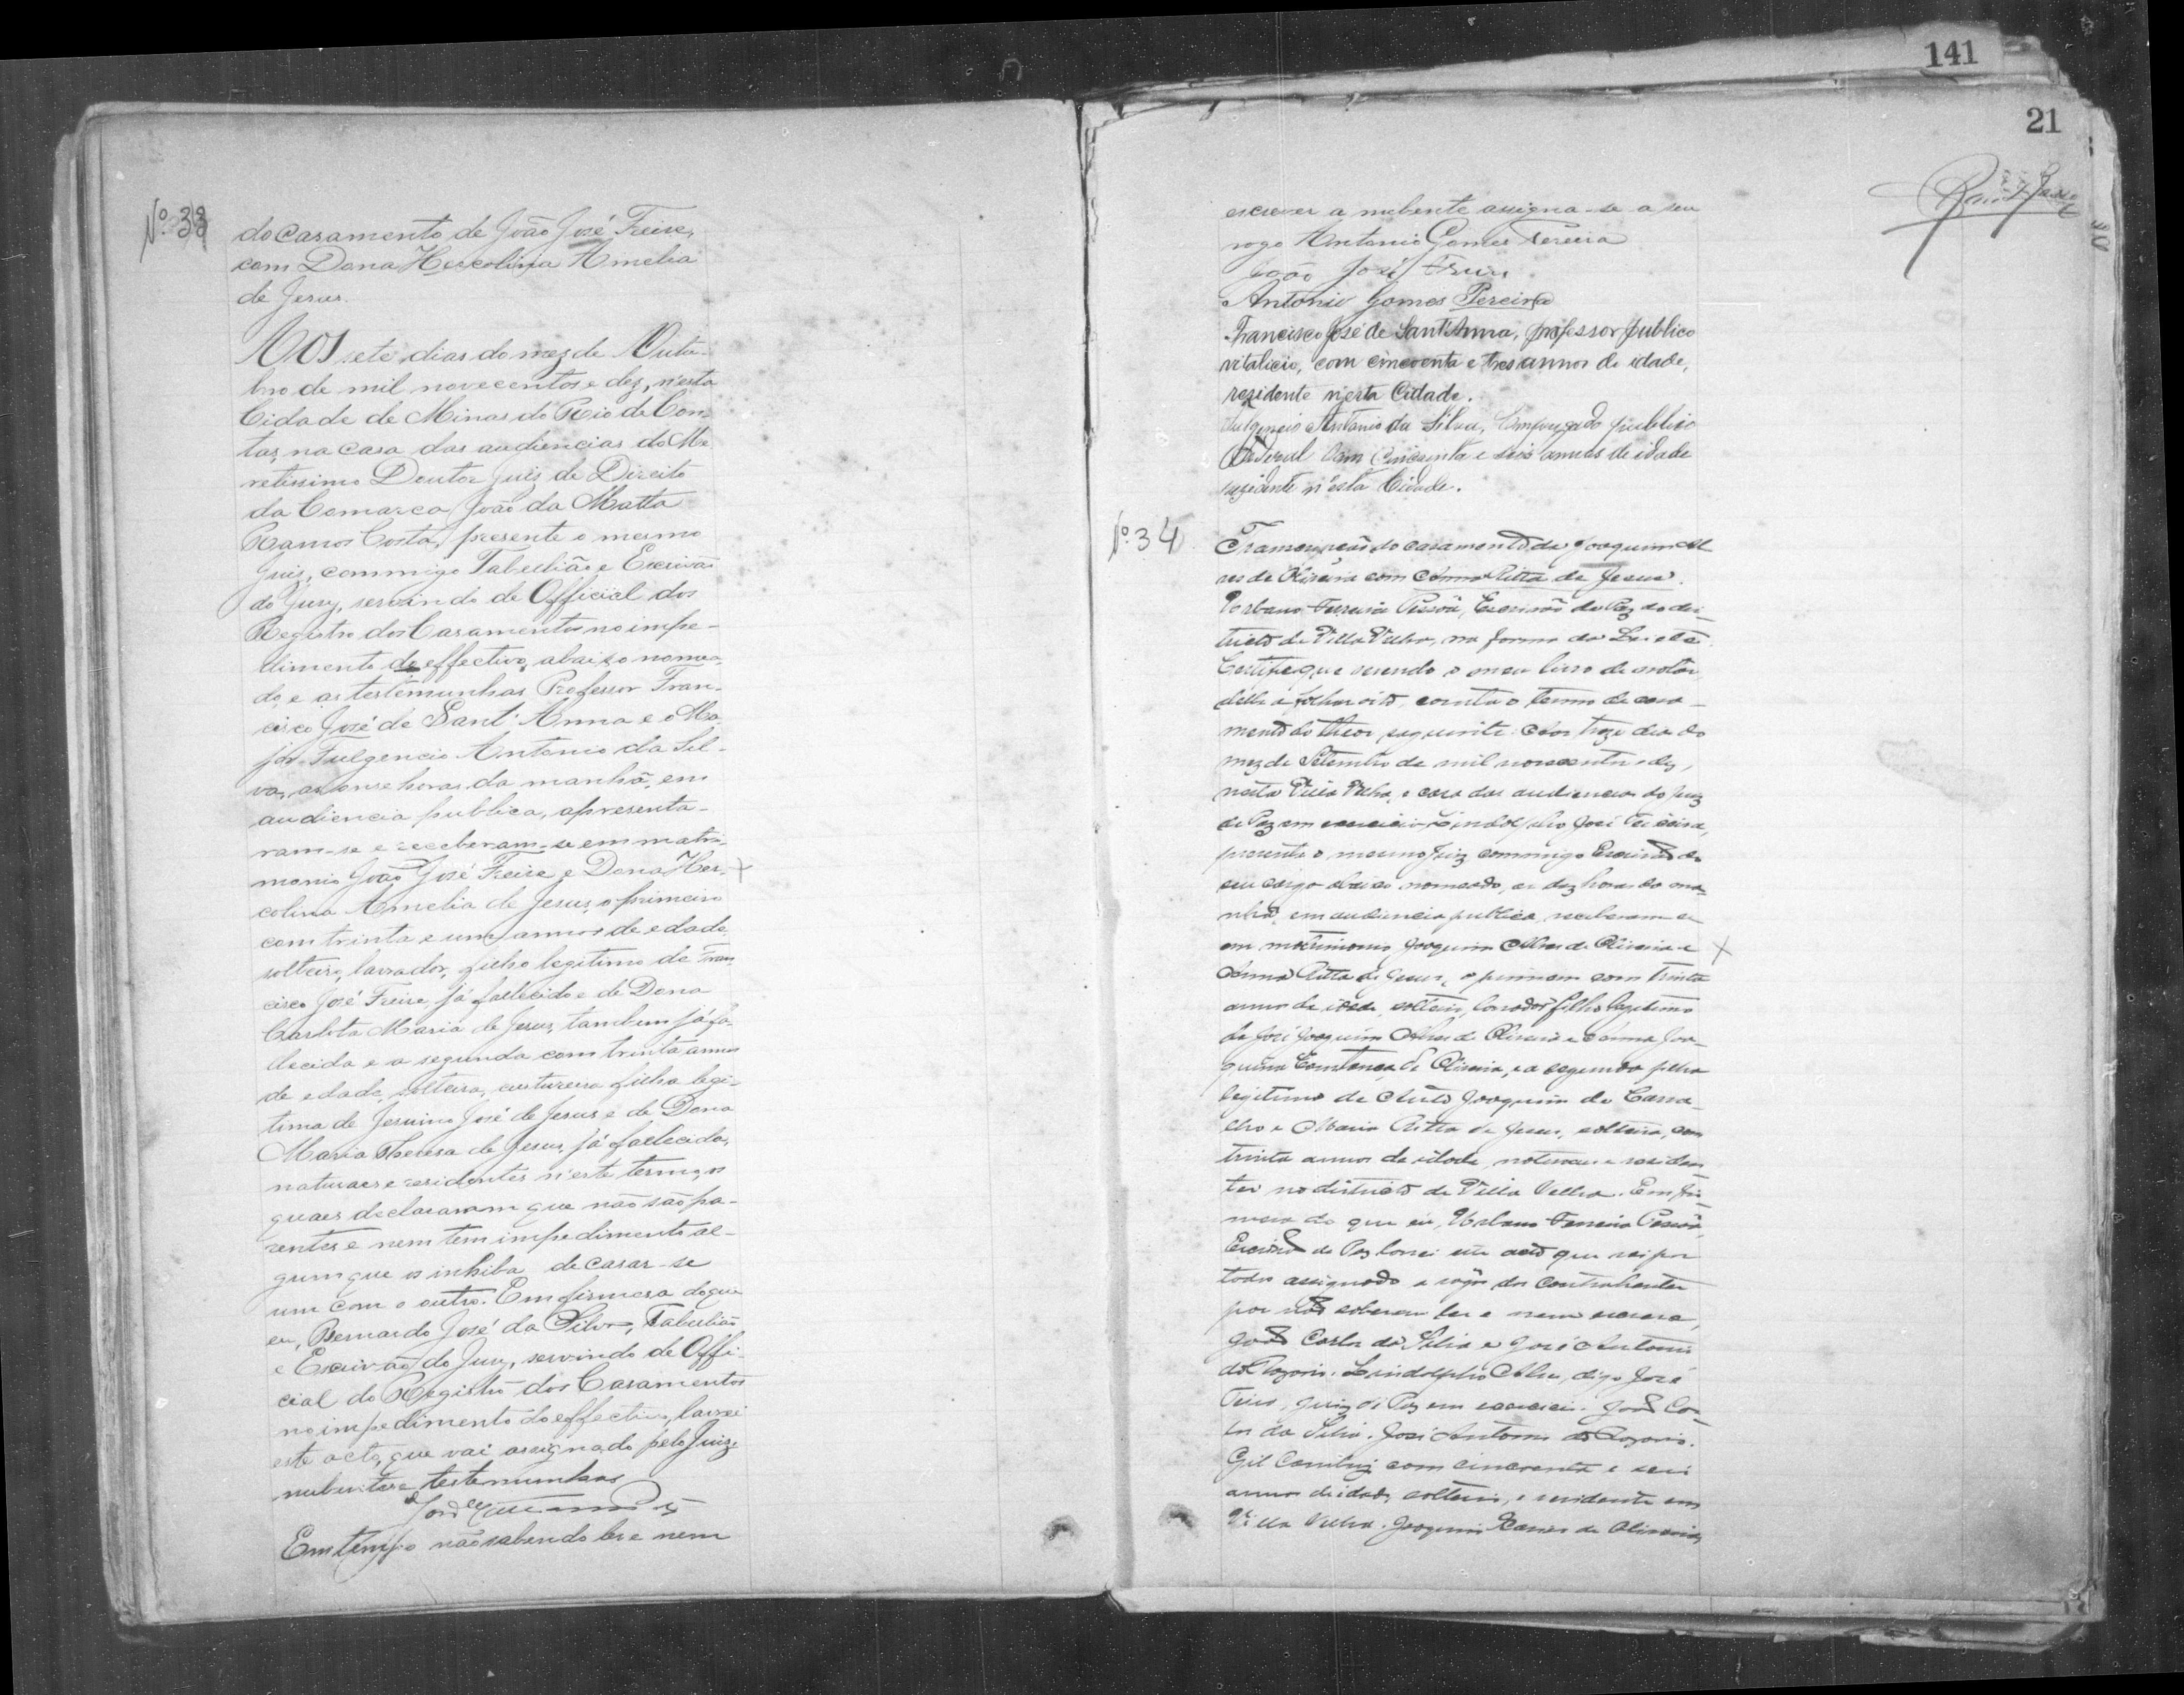 Nº 33
do casamento de João José Freire,
com Dona Hercolina Amelia
de Jesus.
Aos sete dias do mez de Outu-
bro de mil novecentos e dez, n'esta
Cidade de Minas do Rio de Con-
tas, na casa das audiencias do Me-
retissimo Doutor Juiz de Direito
da Comarca João da Matta
Ramos Costa, presente o mesmo
Juiz, commigo Tabellião e Escrivão
do Jury, servindo de Official dos
Registro dos Casamentos no impe-
dimento do effectivo, abaixo nomea-
do, e as testemunhas Professor Fran-
cisco José de Sant'Anna e o Ma-
jor Fulgencio Antonio da Sil-
va, as onse horas da manhã, em
audiencia publica, apresenta-
ram-se e receberam-se em matri-
monio João José Freire e Dona Her-
colina Amelia de Jesus, o primeiro
com trinta e um annos de edade,
solteiro, lavrador, filho legitimo de Fran-
cisco José Freire, já fallecido e de Dona
Carlota Maria de Jesus, tambem já fa-
llecida e a segunda com trinta annos
de edade, solteira, custureira filha legi-
tima de Jesuino José de Jesus e de Dona
Maria Theresa de Jesus, já fallecida,
naturaes e residentes n'este termo, os
quaes declararam que não são pa-
rentes e nem tem impedimento al-
gum que os inhiba de casar-se
um com o outro. Em firmesa do que
eu, Bernardo José da Silva, Tabellião
e Escrivão do Jury, servindo de Offi-
cial do Registro dos Casamentos
no impedimento do effectivo, lavrei
este acto, que vai assignado pelo Juiz,
nubentes e testemunhas
Em tempo não sabendo ler e nem
141
21
escrever a nubente assigna-se a seu
rogo Antonio Gomes Pereira
João José Freire
Antonio Gomes Pereira
Francisco José de Sant'Anna, professor publico
vitalicio, com cincoenta e tres annos de idade,
rezidente n'esta Cidade.
Fulgencio Antonio da Silva, Empregado publico
Federal com cincoenta e seis annos de idade
rezidente n'esta Cidade.
Nº 34
Transcripção do casamento de Joaquim Al
ves de Oliveira com Anna Ritta de Jesus.
Urbano Ferreira Pessôa, Escrivão de Paz do dis-
tricto de Villa Velha, na forma da Lei etc.
Certifico que revendo o meu livro de
delle a folhas oito, consta o termo de casa-
mento do theor seguinte: Aos treze dia do
mez de Setembro de mil novecentos e dez,
nesta Villa Velha, e casa das audiencias do Juiz
de Paz em exercicio Lindolpho José Teixeira,
presente o mesmo Juiz commigo Escrivão de
seu cargo abaixo nomeado, as dez horas da ma-
nhã, em audiencia publica, receberam se
em matrimonio Joaquim Alves de Oliveira e
Anna Ritta de Jesus, o primeiro com trinta
annos de idade, solteiro, lavrador filho legitimo
de José Joaquim Alves de Oliveira e Anna Joa-
quina Constança de Oliveira, e a segunda filha
legitima de Joaquim de Carva-
lho e Maria Ritta de Jesus, solteira, com
trinta annos de idade, naturaes e residen-
tes no districto de Villa Velha. Em fir-
mesa do que eu, Urbano Ferreira Pessôa,
Escrivão de Paz lavrei este acto que vai por
todos assignado a rogo dos Contrahentes
por não saberem ler e nem escrever,
João Carlos da Silva e José Antonio
do Rozario. Lindolpho Alves, digo José
Juiz de Paz em exercicio. João Car-
los da Silva. José Antonio do Rozario.
Gil com cincoenta e seis
annos de idade, solteiro, e residente em
Villa Velha. Joaquim de Oliveira,